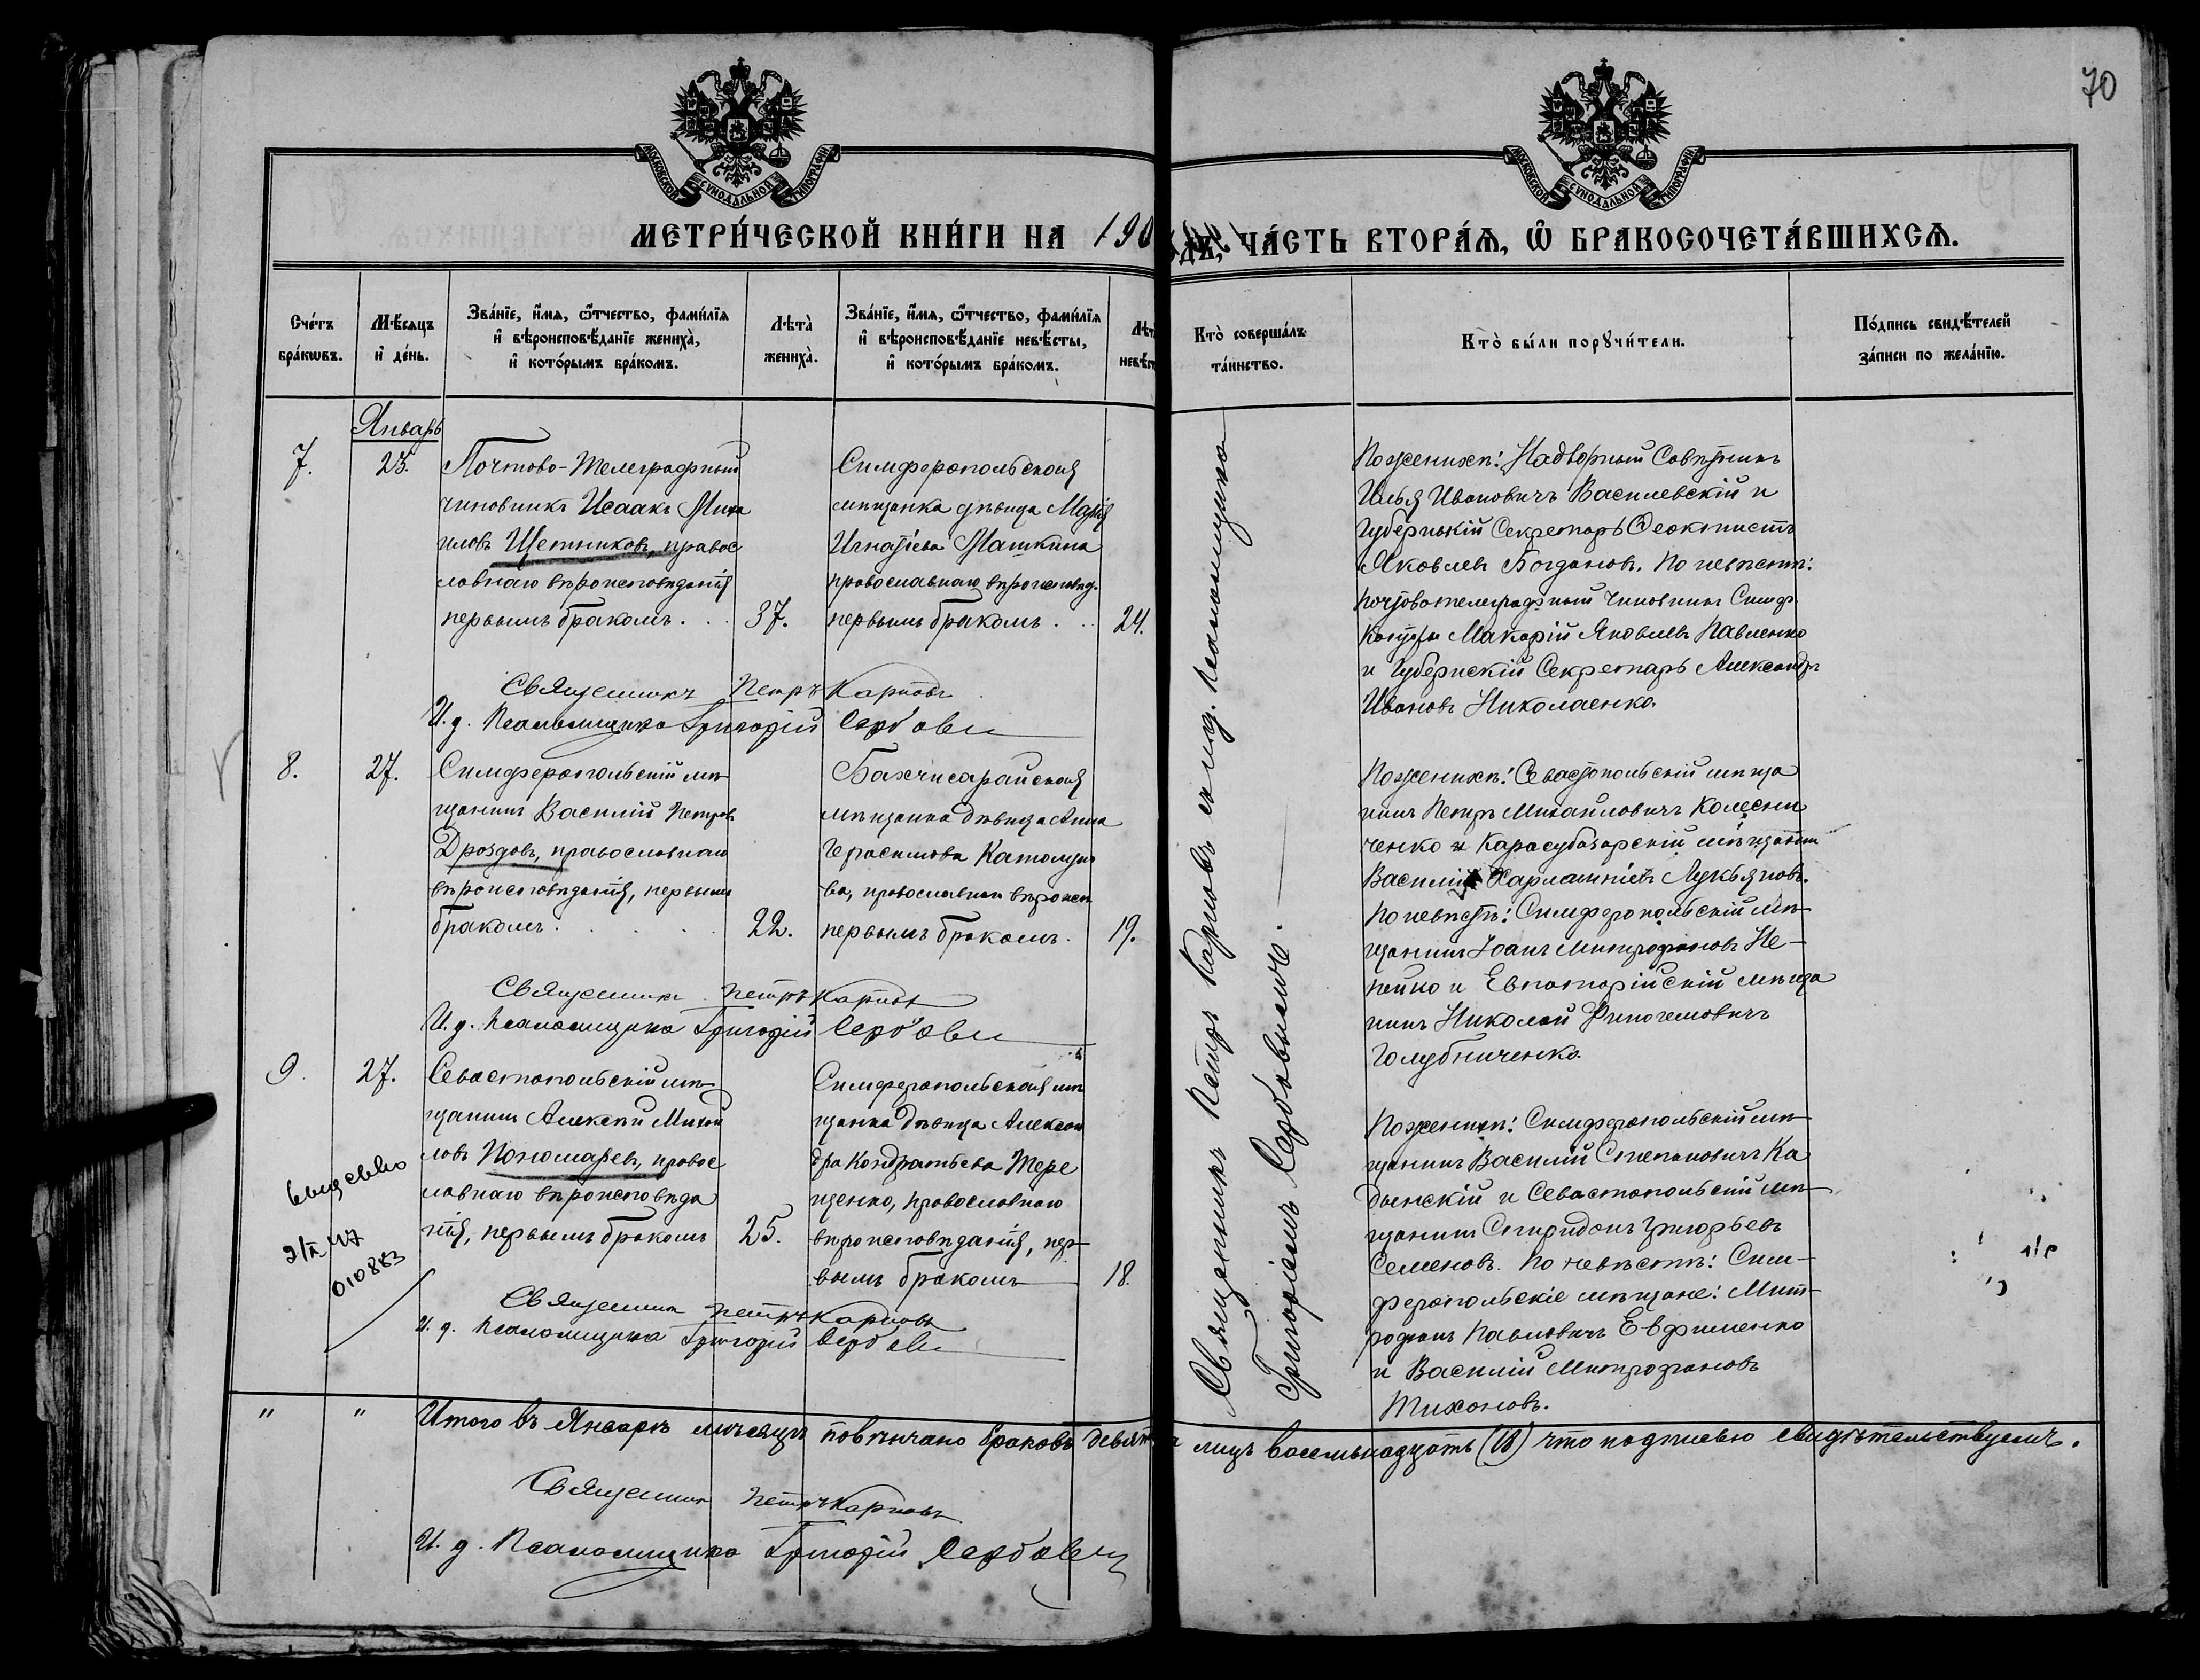 70
МОСКОВСКОЙ СѴНОДАЛЬНОЙ ТИПОГРАФІИ
МОСКОВСКОЙ СѴНОДАЛЬНОЙ ТИПОГРАФІИ
МЕТРИ́ЧЕСКОЙ КНИ́ГИ НА 190
ЧА́СТЬ ВТОРА́Ѧ, Ѡ БРАКОСОЧЕТА́ВШИХСѦ.
Сче́тъ
бра́кѡвъ.
Мѣ́сяцъ
и҆ де́нь.
Зва́нїе, и҆́мя, ѻ҆́тчество, фами́лїя
и҆ вѣроисповѣ́данїе жениха̀,
и҆ кото́рымъ бра́комъ.
Лѣта̀
жениха̀.
Зва́нїе, и҆́мя, ѻ҆́тчество, фами́лїя
и҆ вѣроисповѣ́данїе невѣ́сты,
и҆ кото́рымъ бра́комъ.
Кто̀ соверша́лъ
та́инство.
Кто̀ бы́ли порꙋчи́тели.
По́дпись свидѣ́телей
за́писи по жела́нїю.
Январь
7.
23.
Почтово-Телеграфный
чиновникъ Исаакъ Миха
иловъ Щетниковъ, правос
лавнаго вѣроисповѣданія
первымъ бракомъ . . 37.
Симферопольская
мѣщанка дѣвица Марія
Игнатіева Машкина
православнаго вѣроисповѣд.
первымъ бракомъ . . 24.
Священникъ Петръ Карповъ
И. д. Псаломщика Григорій Сербовъ
По женихѣ: Надворный Совѣтникъ
Илья Ивановичъ Василевскій и
Губернскій Секретарь Ѳеоктистъ
Яковлевъ Богдановъ. По невѣстѣ:
почтово телеграфный чиновникъ Симф.
Конторы Макарій Яковлевъ Павленко
и Губернскій Секретарь Александръ
Ивановъ Николаенко.
8.
27.
Симферопольскій мѣ
щанинъ Василій Петровъ
Дроздовъ, православнаго
вѣроисповѣданія, первымъ
бракомъ . . . . 22.
Бахчисарайская
мѣщанка дѣвица Анна
Герасимова
ва, православнаго вѣроисп
первымъ бракомъ. 19.
Священникъ Петръ Карповъ
И. д. Псаломщика Григорій Сербовъ
По женихѣ: Севастопольскій мѣща
нинъ Петръ Михайловичъ Колесни
ченко и Карасубазарскій мѣщанин
Василій Харлампіевъ Лукьяновъ.
По невѣстѣ: Симферопольскій мѣ
щанинъ Іоанъ Митрофановъ Не-
пейко и Евпаторійскій мѣща
нинъ Николай
Голубниченко.
9.
27.
Севастопольскій мѣ
щанинъ Алексѣй Михай
ловъ Пономаревъ, правос
лавнаго вѣроисповѣда
нія, первымъ бракомъ 25.
Симферопольская мѣ
щанка дѣвица Алексан
дра Кондратьева Тере
щенко, православнаго
вѣроисповѣданія, пер-
вымъ бракомъ 18.
010883
Священникъ Петръ Карповъ
И. д. Псаломщика Григорій Сербовъ
По женихѣ: Симферопольскій мѣ
щанинъ Василій Степановичъ Ка
дынскій и Севастопольскій мѣ
щанинъ Спиридонъ Григорьевъ
Семеновъ. По невѣстѣ: Сим-
феропольскіе мѣщане: Мит-
рофанъ Павловичъ Евфименко
и Василій Митрофановъ
Тихоновъ.
Священникъ Петръ Карповъ съ и. д. Псаломщика
Григоріемъ Сербовымъ.
" " Итого въ Январѣ мѣсяцѣ повѣнчано браковъ девять лицъ восемьнадцать (18) что подписью свидѣтельствуемъ.
Священникъ Петръ Карповъ
И. д. Псаломщика Григорій Сербовъ